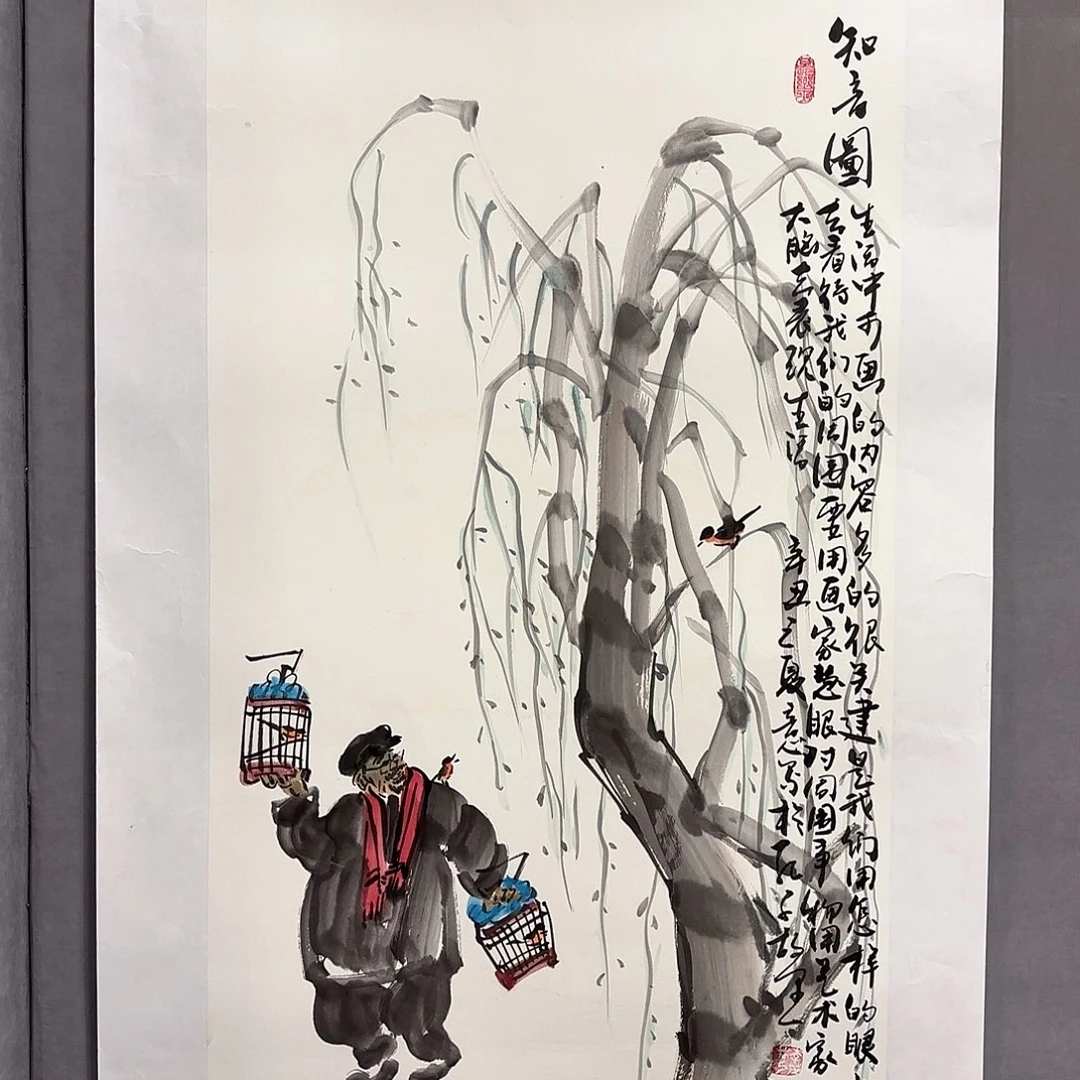 知音圖
生活中可画的内容多的很关建是我们用怎样的眼
去看待我们的周围要用画家慧眼对周围事物用艺术家
大脑去表现生活 辛丑之夏意写於